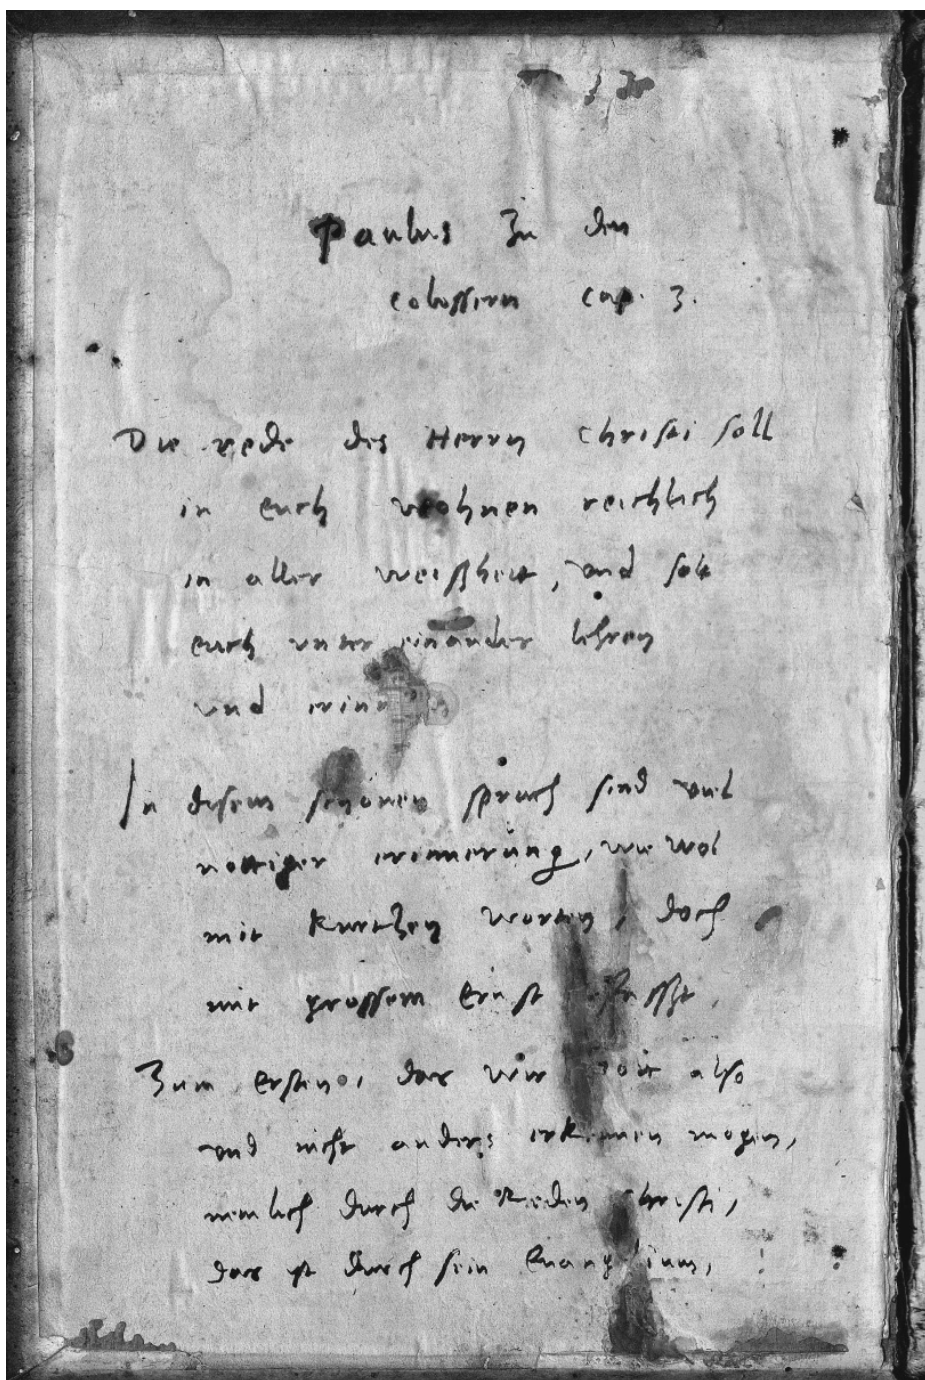 Paulus Zu den
colossern cap. 3.
Die rede des Herrn Christi soll
in euch wohnen reichlich
in aller weißheit, vnd solt
euch vnter einander lehren
vnd
In disem schönen spruch sind viel
nottiger erinnerung, wie wol
mit kurtzen worten, doch
mit grossem ernst
Zum Ersten, das wir also
vnd nicht anders erkennen mogen,
nemlich durch die Reden Christi,
das ist durch sein Euangelium,